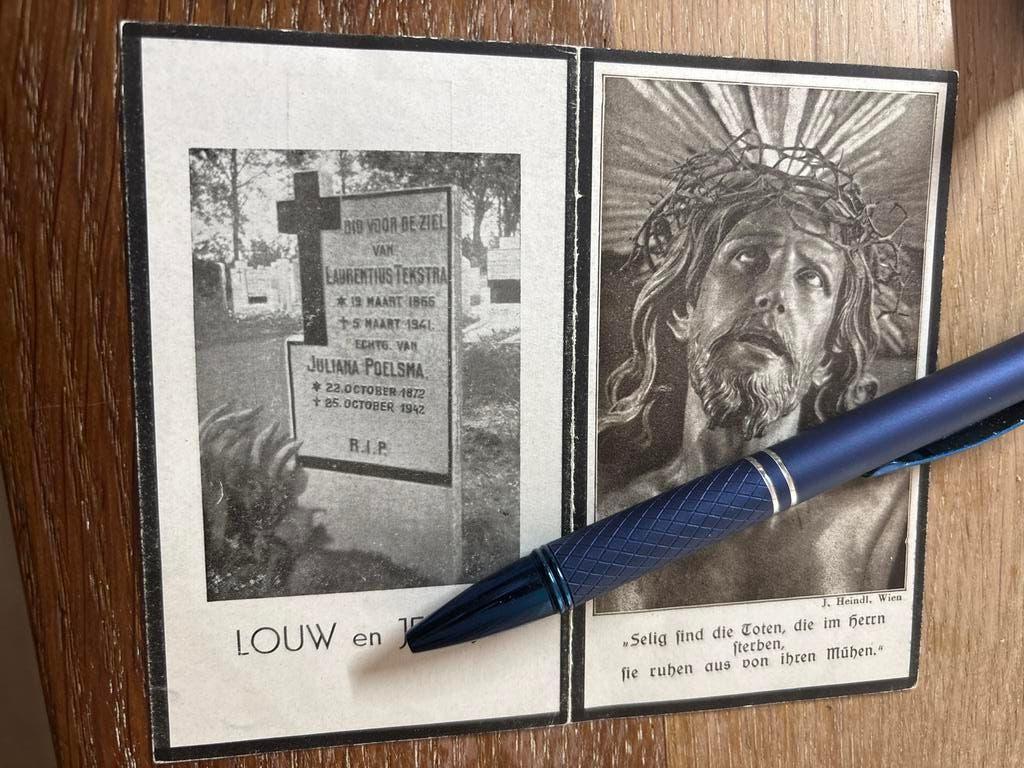 BID VOOR DE ZIEL
VAN
LAURENTIUS TEKSTRA
* 19 MAART 1866
† 5 MAART 1941.
ECHTG. VAN
JULIANA POELSMA.
* 22.OCTOBER 1872
† 25.OCTOBER 1942
R.I.P.
LOUW en
J. Heindl, Wien
„Selig sind die Toten, die im Herrn
sterben,
sie ruhen aus von ihren Mühen.“